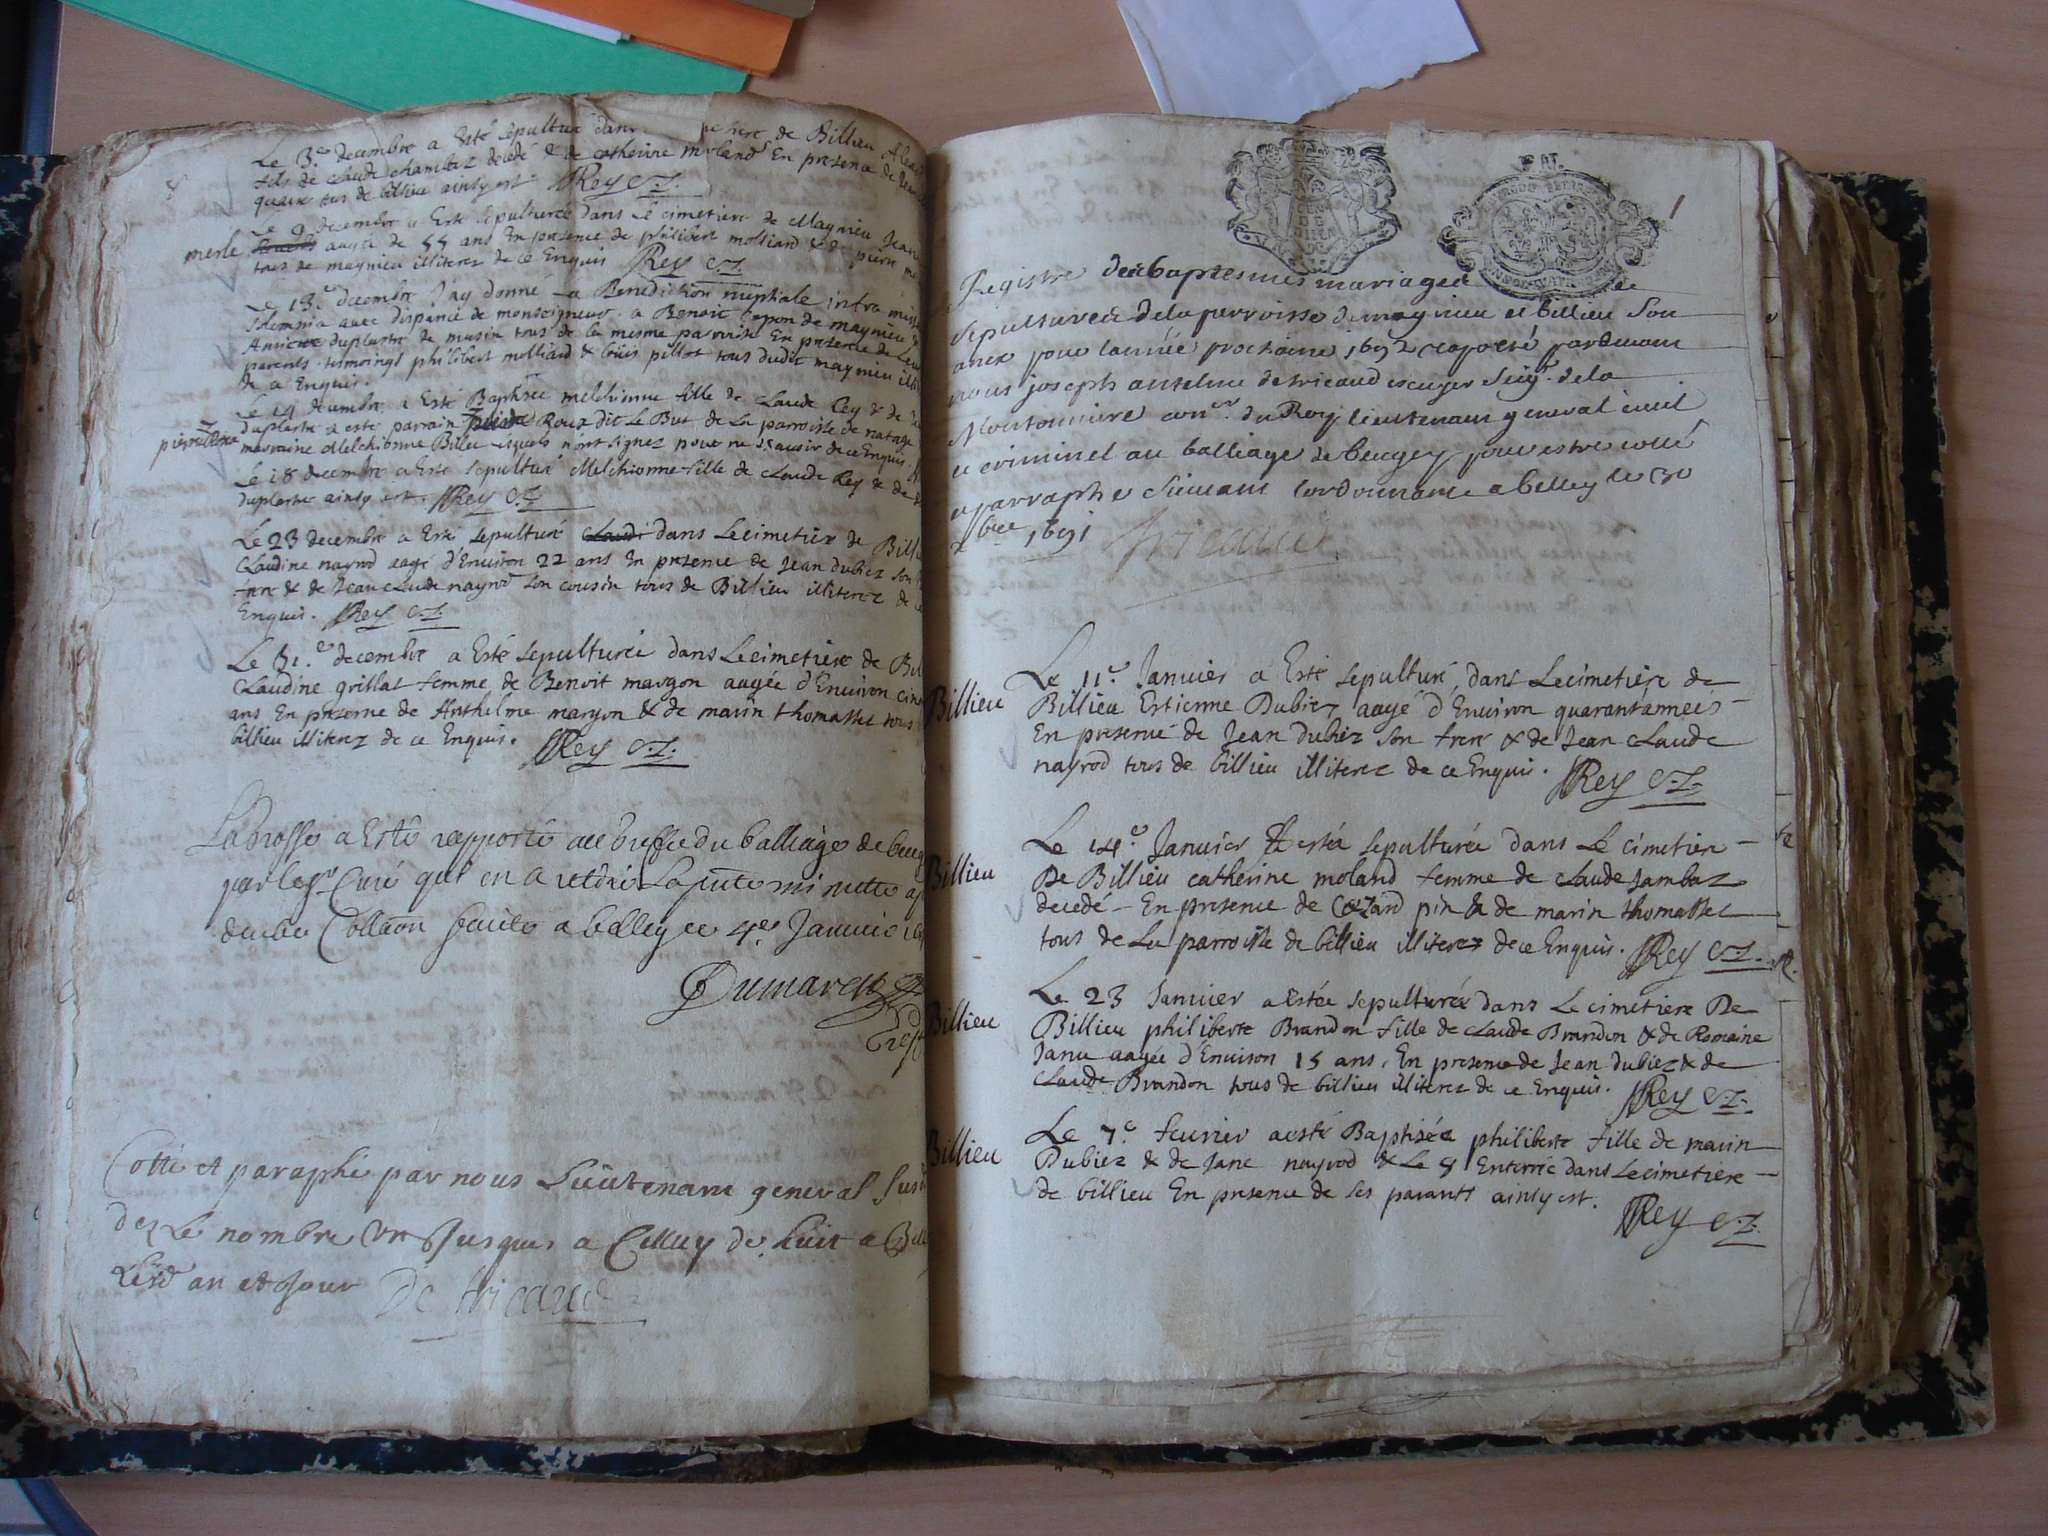 Le 3.e decembre a Esté sepulturé dans de Billieu
fils de claude chambaz decedé & de catherine morland En presence de
tous de billieu ainsy est Rey
Le decembre a Esté sepulturé dans Le cimetiere de Magnieu Jean
merle aagé de 55 ans En presence de philibert molliard & de pierre
tous de magnieu illiterez de ce Enquis Rey
Le 13.e decembre J'ay donné La Benediction nuptiale intra
solemnia avec dispance de monseigneur a Benoit de magnieu
duplastre de musin tous de la mesme parroisse En presence de
parents tesmoings philibert molliard & louis pillot tous dudit magnieu
de ce Enquis.
Le 14 decembre a Esté Baptisée melchionne fille de claude Rey & de
duplastre a esté parrain Roux dit Le But de La parroisse de natage
marraine Melchionne Billieu lesquels n'ont signez pour ne sçavoir de ce Enquis
Le 18 decembre a Esté sepulturé Melchionne fille de claude Rey & de
duplastre ainsy est. Rey
Le 23 decembre a Esté sepulturé dans Le cimetiere de
Claudine nayrod aagé d'Environ 22 ans En presence de Jean dubiez son
frere & de Jean claude nayrod son cousin tous de Billieu illiterez de
Enquis. Rey
Le 31.e decembre a Esté sepulturée dans Le cimetiere de
Claudine grillat femme de Benoit margon aagée d'Environ
ans En presence de Anthelme margon & de marin thomasset tous
billieu illiterez de ce Enquis. Rey
La Grosse a Esté rapporté au Greffe du balliage de
par le Sr Curé qui en a retiré La minutte
Collaon faicte a belley ce 4e Janvier
Dumarest
Cotté et paraphé par nous Lieutenant general
dez Le nombre Un Jusques a Celluy de huit a
an et Jour De tricaud
1
Registre des baptesmes mariages
sepultures de la parroisse de magnieu et billieu son
anex pour lannée prochaine 1692 par devant
nous joseph anselme de tricaud escuyer Seigr. de la
Montonniere conser. du Roy lieutenant general civil
et criminel au balliage de beugey pour estre cotté
et parraphé suivant lordonnance a belley le 30
xbre 1691 Tricaud
Billieu Le 11.e Janvier a Esté sepulturé dans Le cimetiere de
Billieu Estienne Dubiez aagé d'Environ quarant'années
En presence de Jean dubiez son frere & de Jean claude
nayrod tous de billieu illiterez de ce Enquis. Rey
Billieu Le 14.e Janvier a estée sepulturée dans Le cimetiere
De Billieu catherine moland femme de claude Jambaz
decedé En presence de Cezard pin & de marin thomasset
tous de La parroisse de billieu illiterez de ce Enquis. Rey
Billieu Le 23 Janvier a Estée sepulturée dans Le cimetiere De
Billieu philiberte Brandon fille de claude Brandon & de Romaine
Janu aagée d'Environ 15 ans, En presence de Jean dubiez & de
claude Brandon tous de billieu illiterez de ce Enquis. Rey
Billieu Le 7.e fevrier a esté Baptisée philiberte fille de marin
Dubiez & de Jane nayrod & Le 8 Enterrée dans Le cimetiere
de billieu En presence de ses parants ainsy est.
Rey